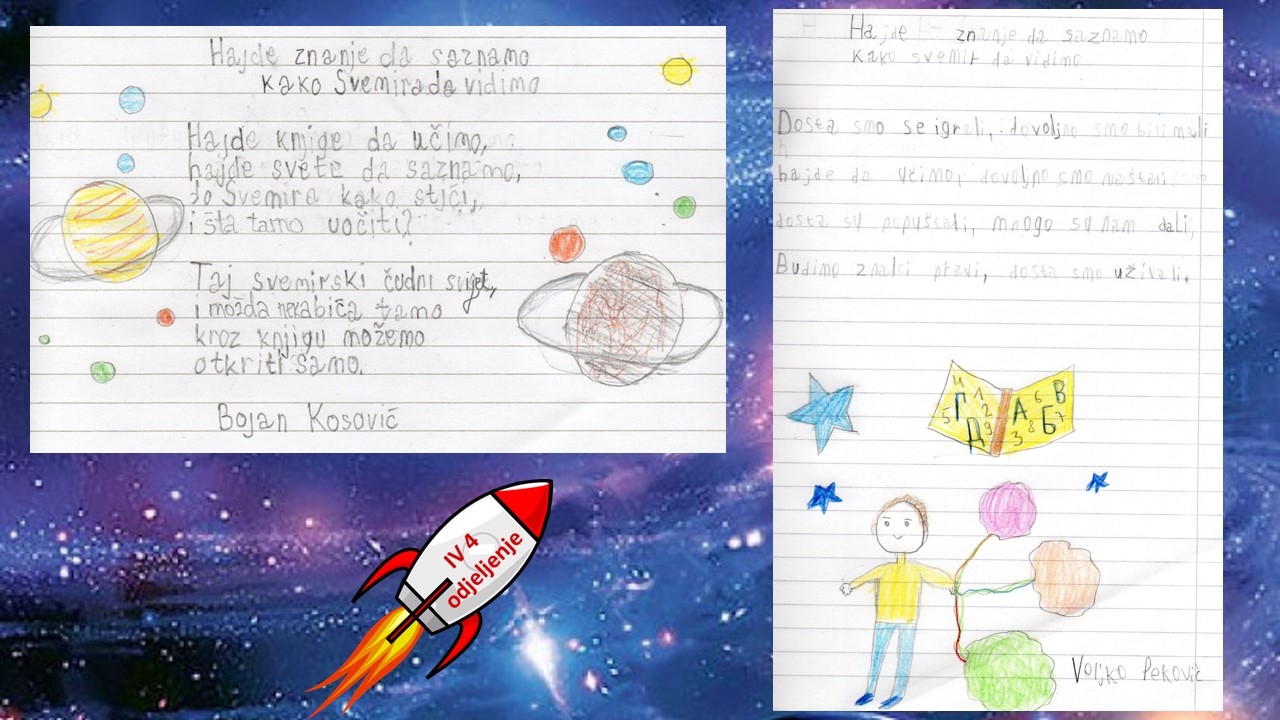 Hajde znanje da saznamo
kako Svemira da vidimo
Hajde knjige da učimo,
hajde svete da saznamo,
do Svemira kako stići,
i šta tamo uočiti?
Taj svemirski čudni svijet,
i možda neka bića tamo
kroz knjigu možemo
otkriti samo.
Bojan Kosović
IV 4
odjeljenje
Hajde znanje da saznamo
kako svemir da vidimo
Dosta smo se igrali, dovoljno smo bili mali
hajde da učimo, dovoljno smo maštali
dosta su popuštali, mnogo su nam dali,
Budimo znalci pravi, dosta smo uživali.
4 1 Г 2 5 Д 9
6 В А Б 7 3 8
Voljko Peković